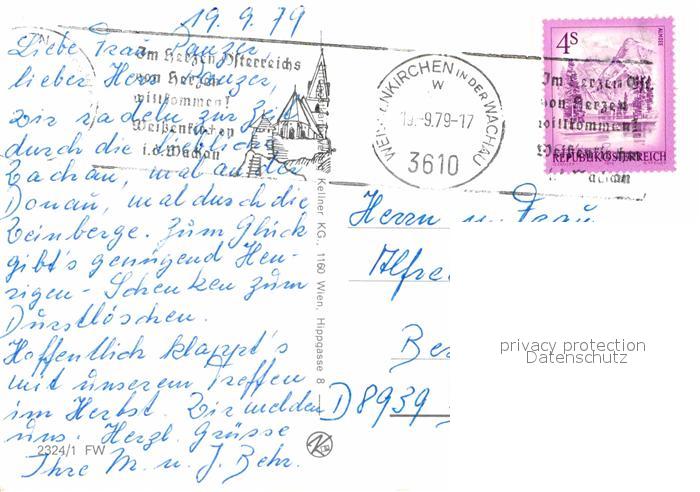 19.9.79
Liebe Frau Panzer,
lieber Herr Panzer,
wir radeln zur Zeit
durch die liebliche
Wachau, mal an der
Donau, mal durch die
Weinberge. Zum Glück
gibt's genügend Heu-
rigen-Schenken zum
Durstlöschen.
Hoffentlich klappt's
mit unserem Treffen
im Herbst. Wir melden
uns. Herzl. Grüsse
Ihre M. u. J. Behr.
2324/1 FW
Im Herzen Österreichs
von Herzen
willkommen!
Weißenkirchen
i.d.Wachau
Kellner KG., 1160 Wien, Hippgasse 8
WEISSENKIRCHEN IN DER WACHAU
w
19.-9.79-17
3610
4S
ALMSEE
REPUBLIK ÖSTERREICH
Im Herzen Öst.
von Herzen
willkommen!
Weißenkirchen
i.d.Wachau
Herrn u. Frau
Alfre
Be
D 8939
privacy protection
Datenschutz